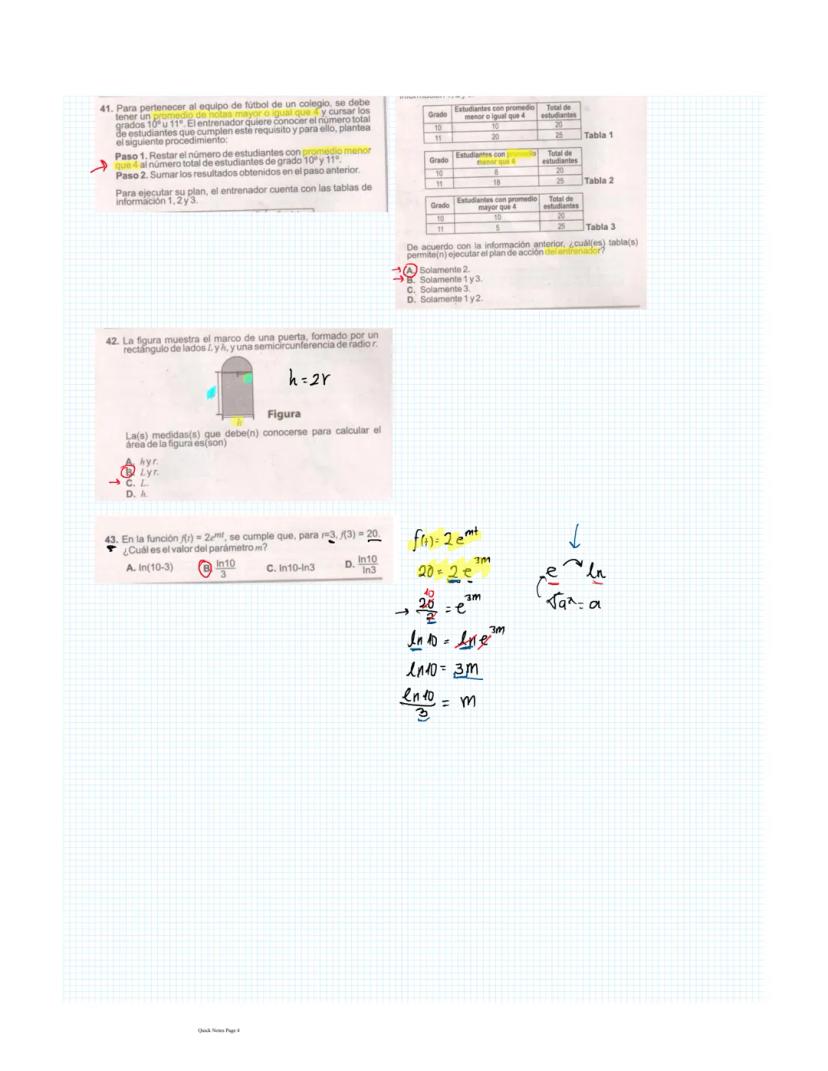 41. Para pertenecer al equipo de fútbol de un colegio, se debe
tener un promedio de notas mayor o igual que 4 y cursar los
grados 10º u 11º. El entrenador quiere conocer el número total
de estudiantes que cumplen este requisito y para ello, plantea
el siguiente procedimiento:
Paso 1. Restar el número de estudiantes con promedio menor
que 4 al número total de estudiantes de grado 10º y 11º.
Paso 2. Sumar los resultados obtenidos en el paso anterior.
Para ejecutar su plan, el entrenador cuenta con las tablas de
información 1, 2 y 3.
Grado Estudiantes con promedio menor o igual que 4 Total de estudiantes
10 10 20
11 20 25
Tabla 1
Grado Estudiantes con promedio menor que 4 Total de estudiantes
10 8 20
11 18 25
Tabla 2
Grado Estudiantes con promedio mayor que 4 Total de estudiantes
10 10 20
11 5 25
Tabla 3
De acuerdo con la información anterior, ¿cuál(es) tabla(s)
permite(n) ejecutar el plan de acción del entrenador?
A. Solamente 2.
B. Solamente 1 y 3.
C. Solamente 3.
D. Solamente 1 y 2.
42. La figura muestra el marco de una puerta, formado por un
rectángulo de lados L y h, y una semicircunferencia de radio r.
h = 2r
h
Figura
La(s) medidas(s) que debe(n) conocerse para calcular el
área de la figura es(son)
A. h y r.
B. L y r.
C. L.
D. h.
43. En la función f(t) = 2e^mt, se cumple que, para t=3, f(3) = 20.
¿Cuál es el valor del parámetro m?
A. ln(10-3) B. ln10/3 C. ln10-ln3 D. ln10/ln3
f(t) = 2 e^mt
20 = 2 e^3m
10
20/2 = e^3m
ln 10 = ln e^3m
ln10 = 3m
ln 10/3 = m
e ln
√a² = a
Quick Notes Page 4